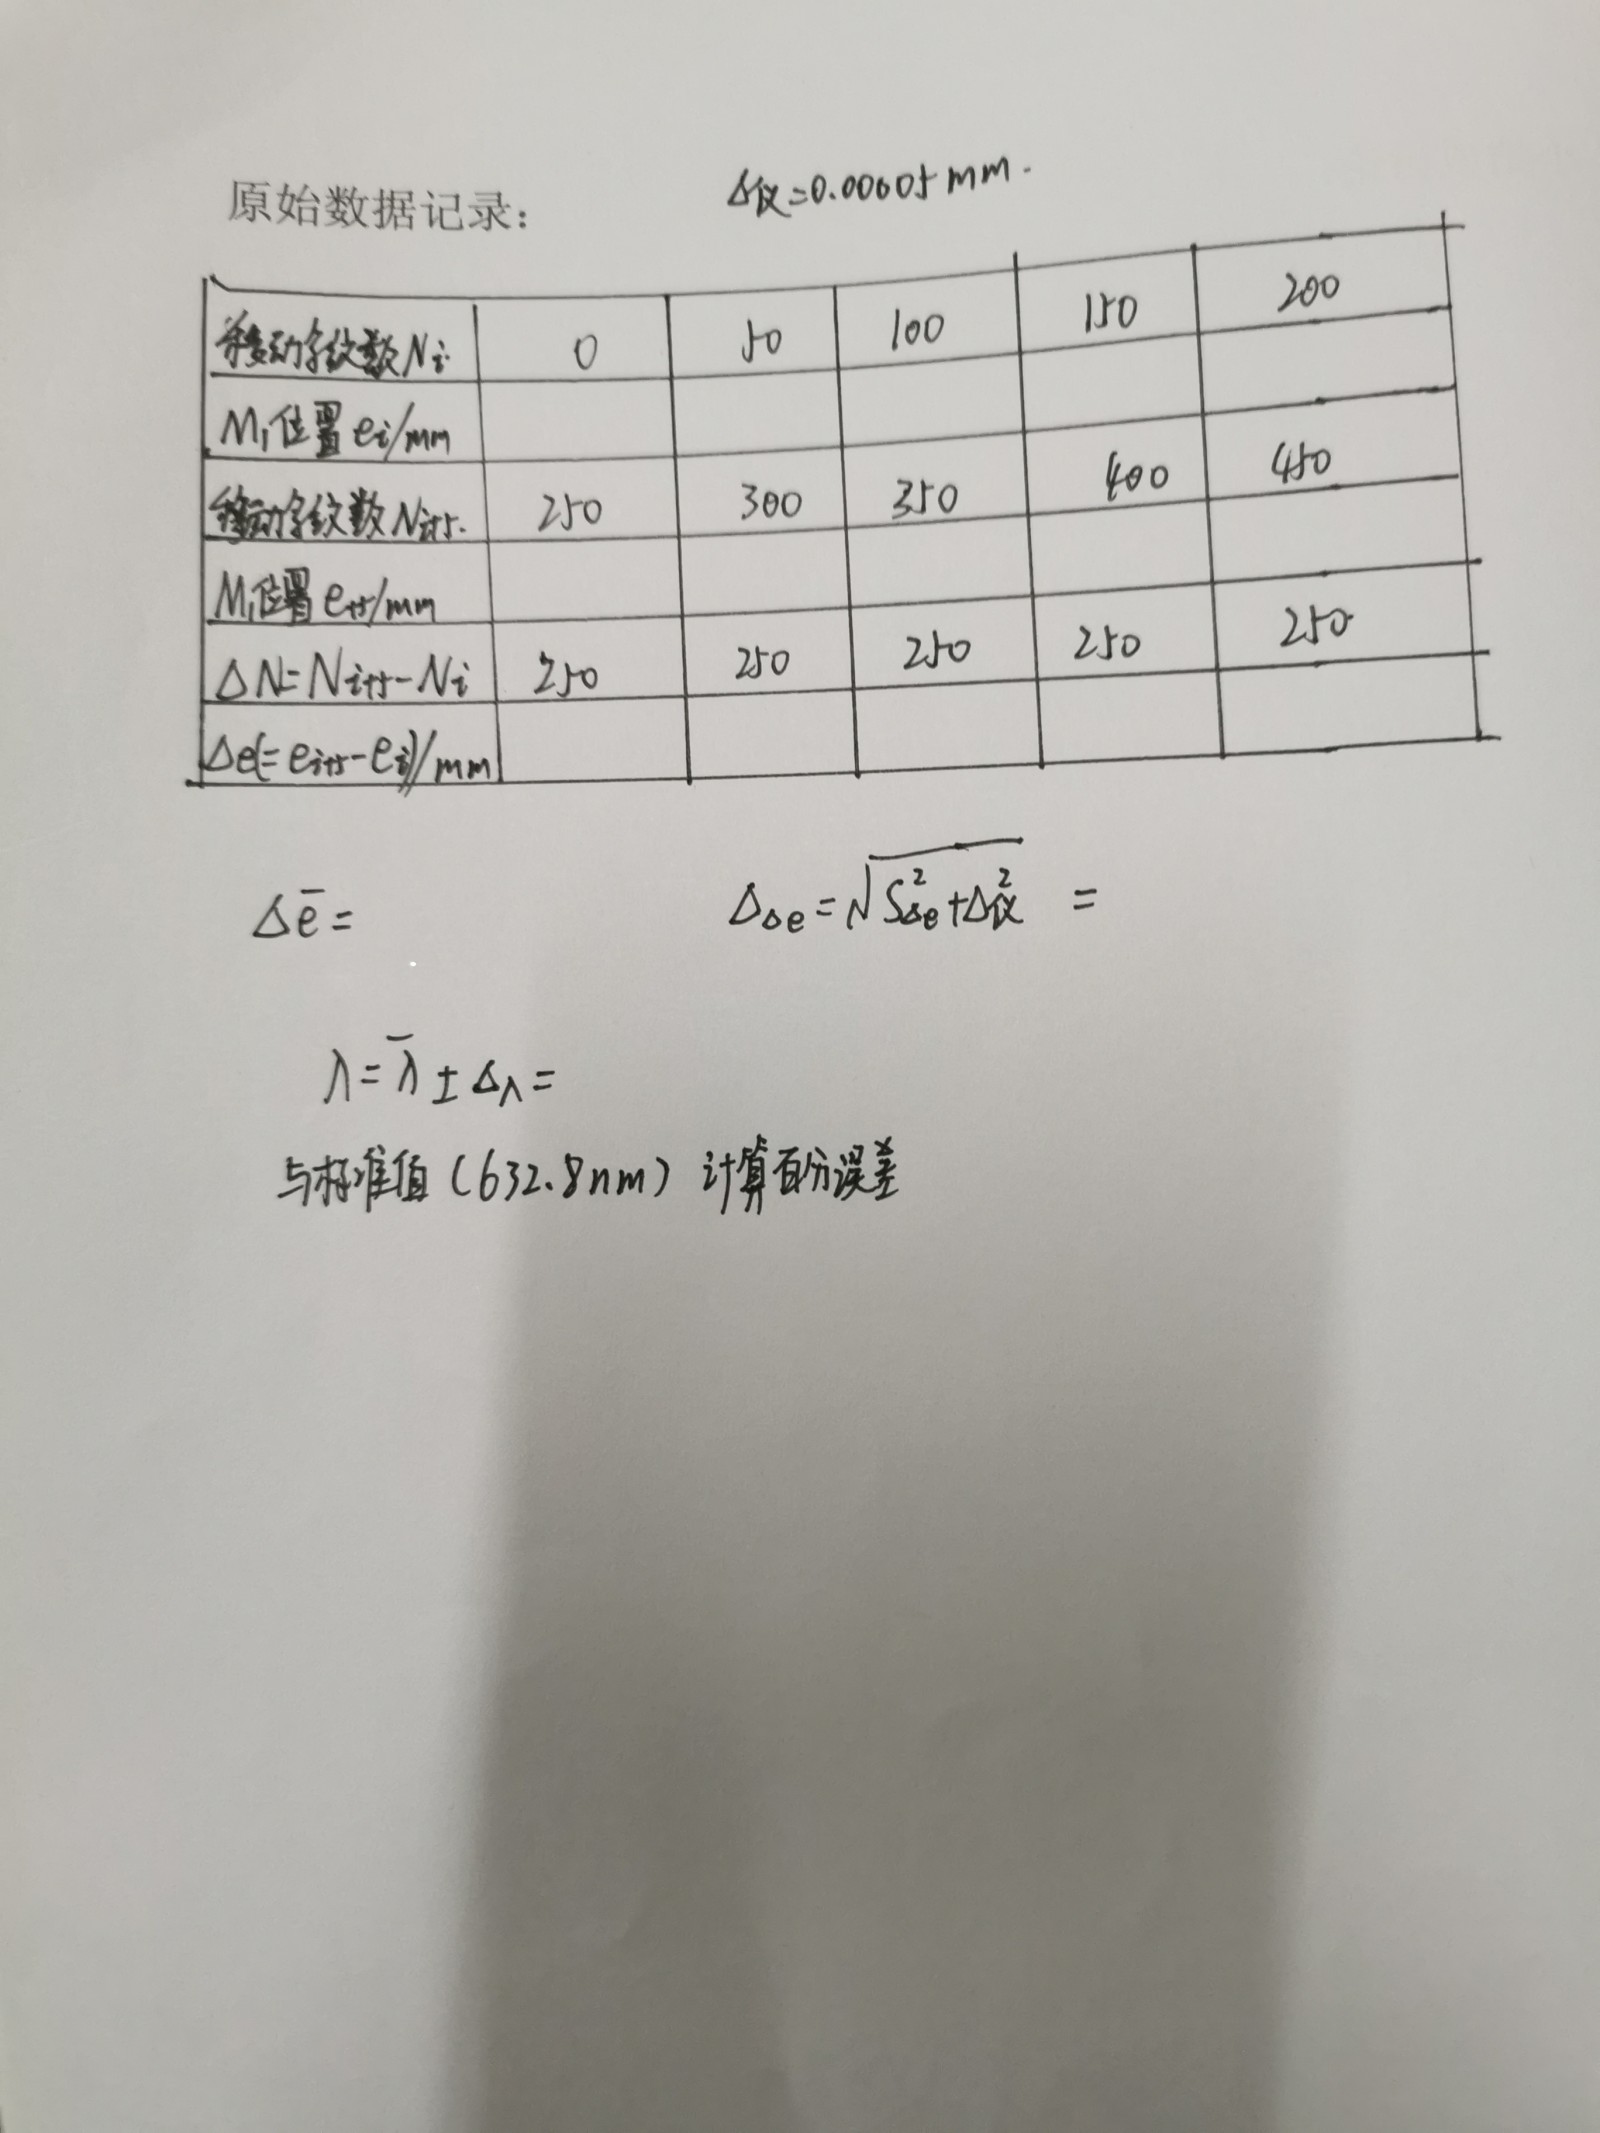 原始数据记录：
Δ仪=0.00005mm.
移动条纹数Ni 0 50 100 150 200
M1位置ei/mm
移动条纹数Ni+5. 250 300 350 400 450
M1位置ei+5/mm
ΔN=Ni+5-Ni 250 250 250 250 250
Δe(=ei+5-ei)/mm
Δē= ΔΔe=√(S²Δe+Δ²仪) =
λ=λ̄±Δλ=
与标准值(632.8nm)计算百分误差